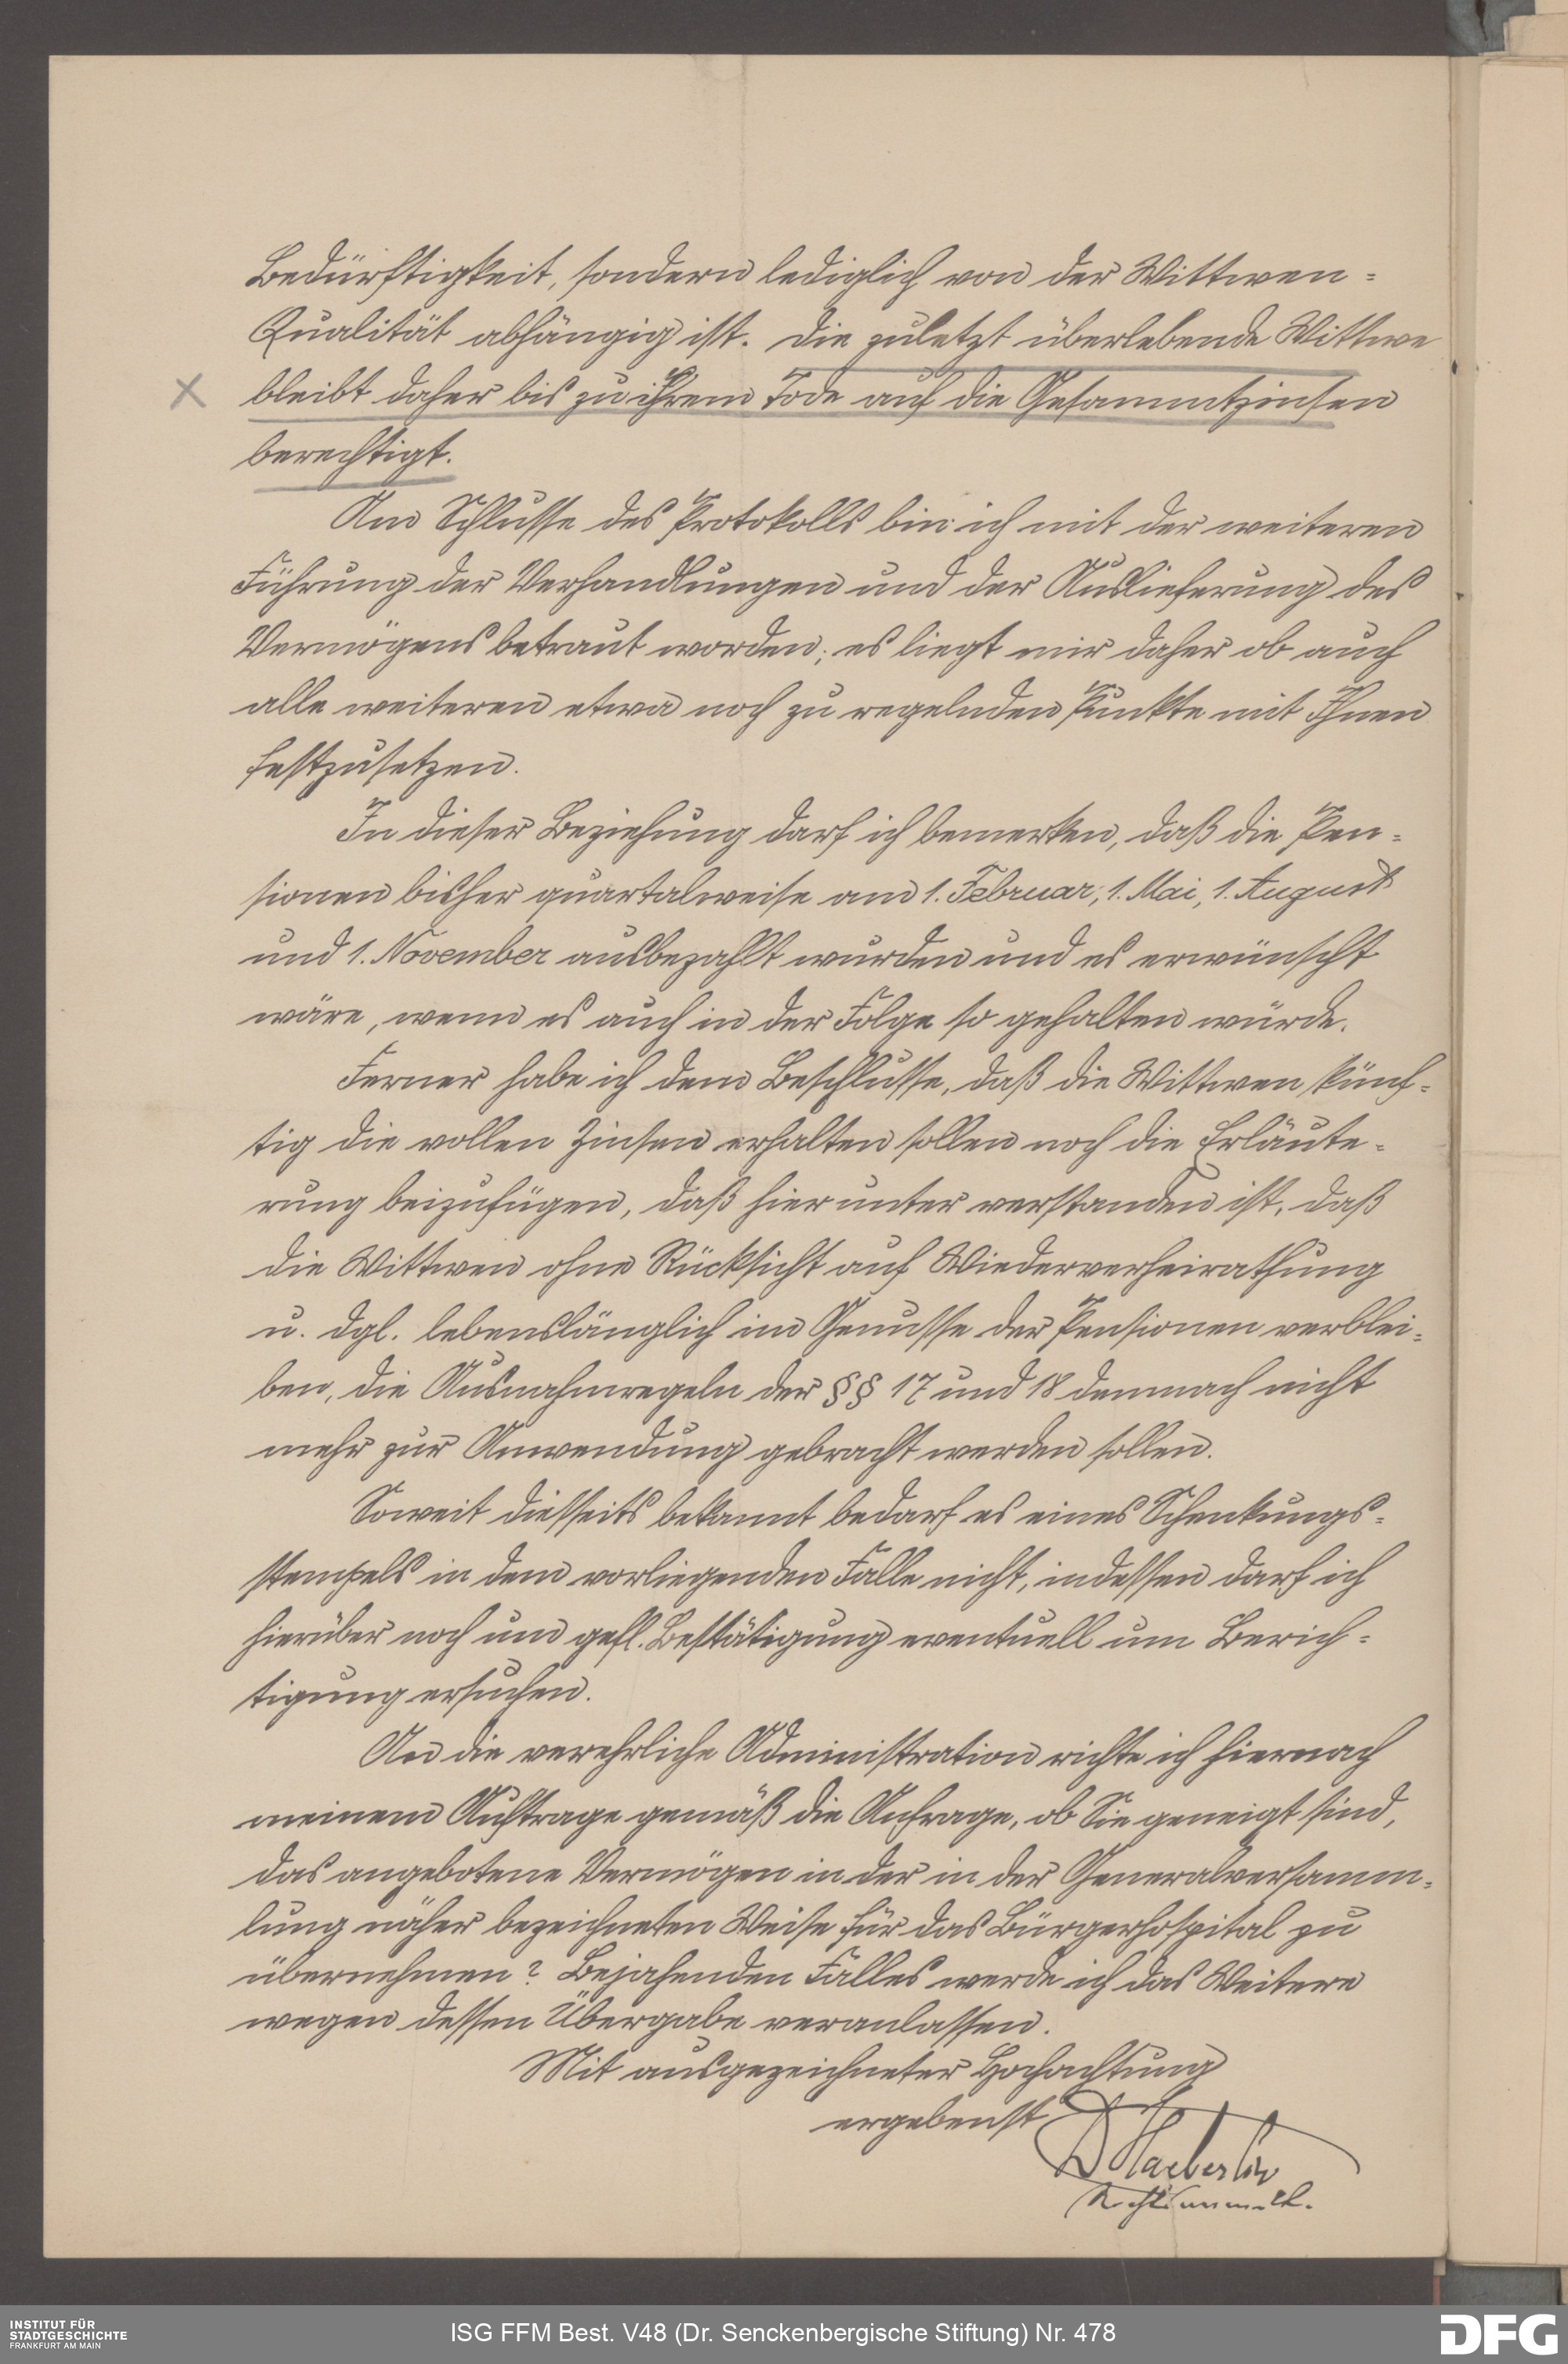 Bedürftigkeit, sondern lediglich von der Wittwen=
Qualität abhängig ist. Die zuletzt überlebende Wittwe
bleibt daher bis zu ihrem Tode auf die Gesammtzinsen
berechtigt.
Am Schlusse des Protokolls bin ich mit der weiteren
Führung der Verhandlungen und der Auslieferung des
Vermögens betraut worden; es liegt mir daher ob auch
alle weiteren etwa noch zu regelnden Punkte mit Ihnen
festzusetzen.
In dieser Beziehung darf ich bemerken, daß die Pen=
sionen bisher quartalweise am 1. Februar, 1. Mai, 1. August
und 1. November ausbezahlt wurden und es erwünscht
wäre, wenn es auch in der Folge so gehalten würde.
Ferner habe ich dem Beschlusse, daß die Wittwen künf=
tig die vollen Zinsen erhalten sollen noch die Erläute=
rung beizufügen, daß hierunter verstanden ist, daß
die Wittwen ohne Rücksicht auf Wiederverheirathung
u. dgl. lebenslänglich im Genusse der Pensionen verblei=
ben, die Ausnahmregeln der §§ 17 und 18 demnach nicht
mehr zur Anwendung gebracht werden sollen.
Soweit diesseits bekannt bedarf es eines Schenkungs=
stempels in dem vorliegenden Falle nicht, indessen darf ich
hierüber noch um gefl. Bestätigung eventuell um Berich=
tigung ersuchen.
An die verehrliche Administration richte ich hiernach
meinem Auftrage gemäß die Anfrage, ob Sie geneigt sind,
das angebotene Vermögen in der in der Generalversamm=
lung näher bezeichneten Weise für das Bürgerhospital zu
übernehmen? Bejahenden Falles werde ich das Weitere
wegen dessen Übergabe veranlassen.
Mit ausgezeichneter Hochachtung
ergebenst
D Haeberlin
Rechtsanwalt.
INSTITUT FÜR
STADTGESCHICHTE
FRANKFURT AM MAIN
ISG FFM Best. V48 (Dr. Senckenbergische Stiftung) Nr. 478
DFG